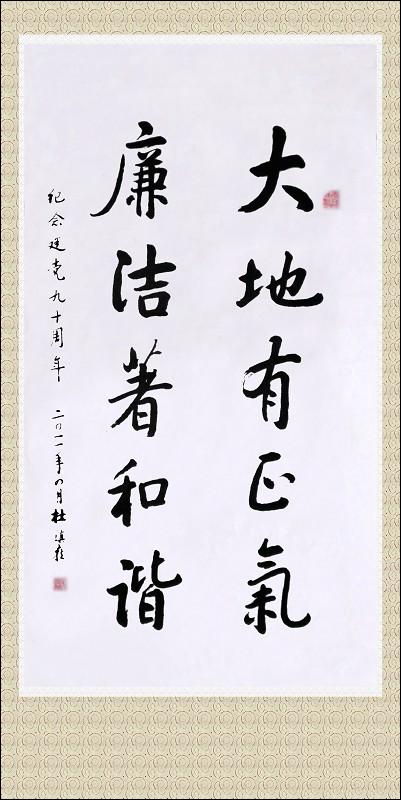 大地有正氣
廉洁著和谐
纪念建党九十周年 二〇一一年四月杜